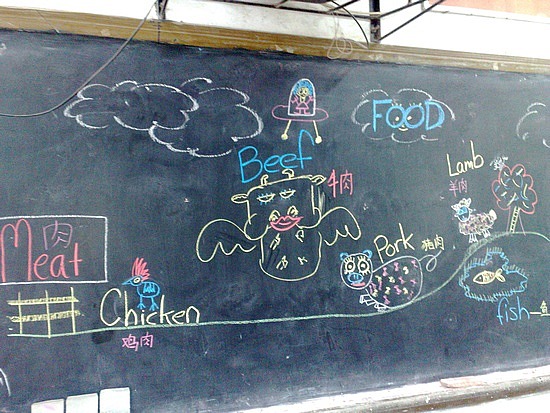 FOOD
Beef
牛肉
Lamb
羊肉
Meat
肉
Pork
猪肉
Chicken
鸡肉
fish
鱼